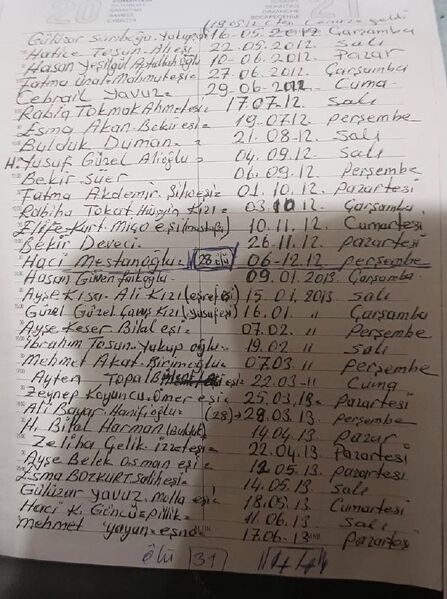 (19.05.12 cenaze geldi
Gülizar Sarıoğlu Yakup 16-05-2012 Çarşamba
Hatice Tosun Ali eşi 22.05.2012 Salı
Hasan Yeşilgül Abdullahoğlu 10-06.2012 Pazar
Fatma Ünal Mahmut eşi: 27.06.2012 Çarşamba
Cebrail Yavuz: 29-06-2012 Cuma
Rabia Tokmak Ahmet eşi: 17.07.12 Salı
Esma Akan Bekir eşi: 19.07.12 Perşembe
Bulduk Duman 21.08.12 Salı
H. Yusuf Güzel Alioğlu 04.09.12 Salı
Bekir Süer 06.09.12 Perşembe
Fatma Akdemir 01.10.12 Pazartesi
Rabiha Tokat Hüseyin Kızı: 03.10.12 Çarşamba
Elife Kurt Miço eşi 10.11.12 Cumartesi
Bekir Deveci 26.11.12 Pazartesi
Haci Mestanoğlu 28 ölü 06-12.12 Perşembe
Hasan Güven 09.01.2013 Çarşamba
Ayşe Kısa Ali Kızı (eşref eşi) 15.01.2013 Salı
Gürel Güzel Kızı (yusuf eşi) 16.01. " Çarşamba
Ayşe Keser Bilal eşi: 07.02. " Perşembe
İbrahim Tosun Yakup oğlu 19.02 " Salı
Mehmet Akat 07.03. " Perşembe
Ayten Topal eşi: 22.03-11 Cuma
Zeynep Koyuncu Ömer eşi: 25.03.13 Pazartesi
Ali Bayar Hanifioğlu: (28) 28.03.13 Perşembe
H. Bilal Harman (Bulduk) 14.04.13 Pazar
Zeliha Çelik İzzet eşi: 22.04.13 Pazartesi
Ayşe Belek Osman eşi: 12.05.13 Pazartesi
Esma Bozkurt Salih eşi: 14.05.13 Salı
Gülüzar Yavuz Molla eşi 18.05.13 Cumartesi
Haci 11.06.13 Salı
Mehmet 17.06.13 Pazartesi
ölü 31